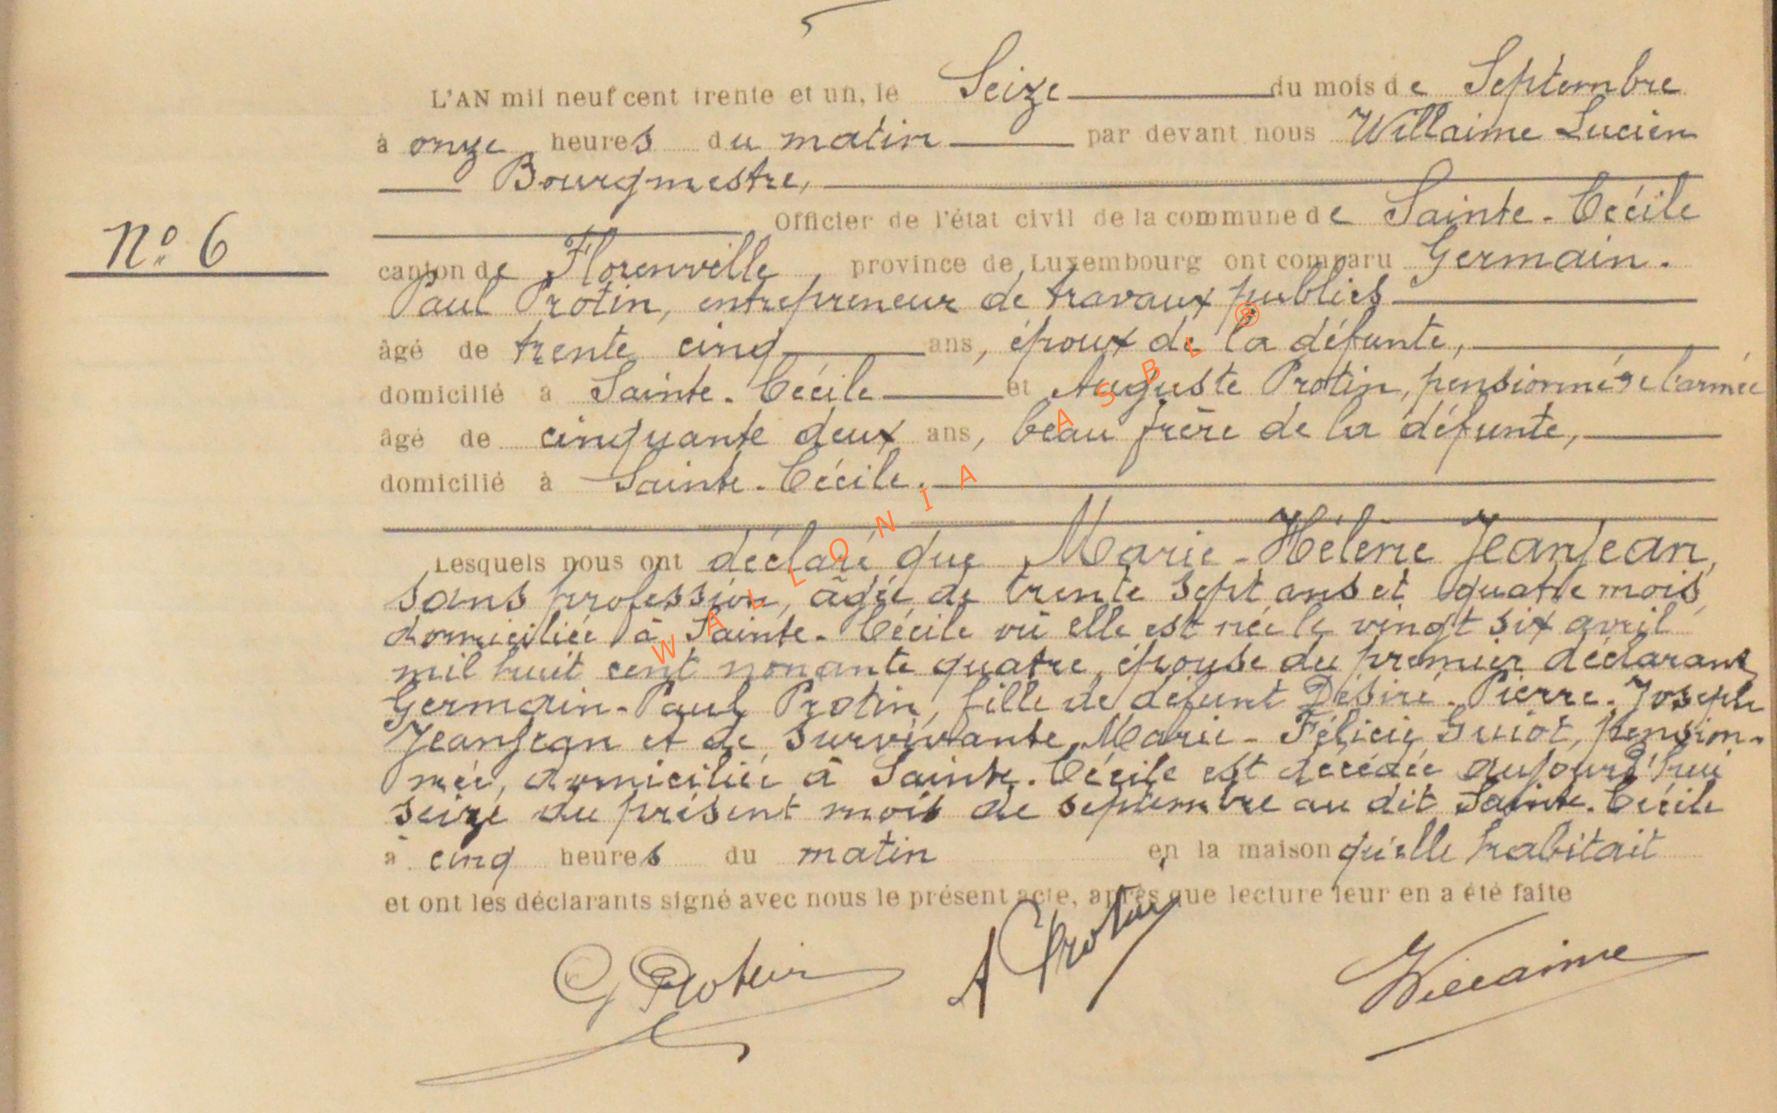 L'AN mil neuf cent trente et un, le Seize du mois de Septembre
à onze heures du matin par devant nous Willaime Lucien
Bourgmestre,
Officier de l'état civil de la commune de Sainte-Cécile
N° 6
canton de Florenville, province de Luxembourg ont comparu Germain-
Paul Protin, entrepreneur de travaux publics
âgé de trente cinq ans, époux de la défunte,
domicilié à Sainte-Cécile et Auguste Protin, pensionné de l'armée
âgé de cinquante deux ans, beau frère de la défunte,
domicilié à Sainte-Cécile.
Lesquels nous ont déclaré que Marie-Hélène Jeanjean,
sans profession, âgée de trente sept ans et quatre mois,
domiciliée à Sainte-Cécile où elle est née le vingt six avril
mil huit cent nonante quatre, épouse du premier déclarant
Germain-Paul Protin, fille de défunt Désiré-Pierre-Joseph
Jeanjean et de survivante Marie-Félicie Guiot, pension-
née, domiciliée à Sainte-Cécile est décédée aujourd'hui
seize du présent mois de septembre au dit Sainte-Cécile
à cinq heures du matin en la maison qu'elle habitait
et ont les déclarants signé avec nous le présent acte, après que lecture leur en a été faite
G Protin A Protin Willaime
WALLONIA ASBL ®